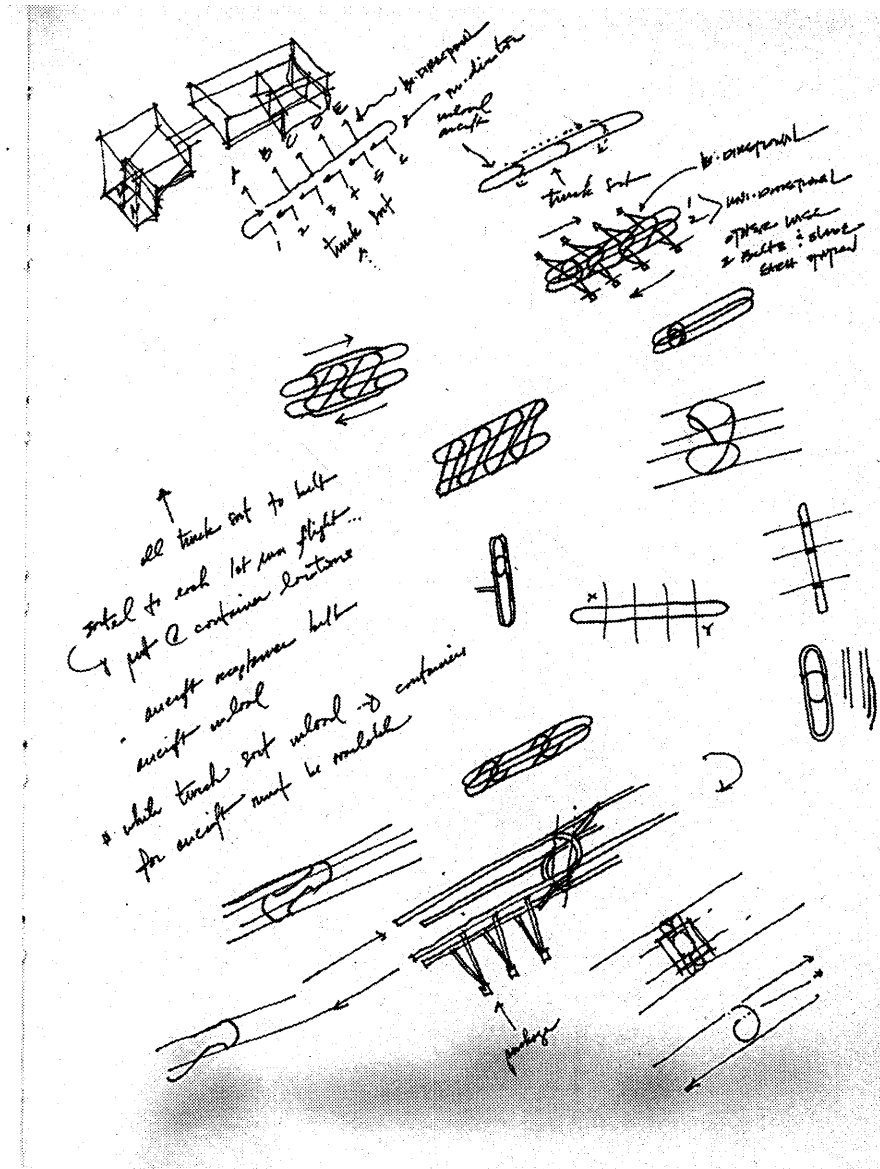 bi-directional
uni-direction
unload
aircraft
A B C D E
1 2 3 4 5 6
truck sort
truck sort
bi-directional
1
2 > uni-directional
2 belts &
all truck sort to belt
sorted to each 1st run flight...
put @ container locations
· aircraft acceptance belt
· aircraft unload
* while truck sort unload → containers
for aircraft must be available
X
Y
package